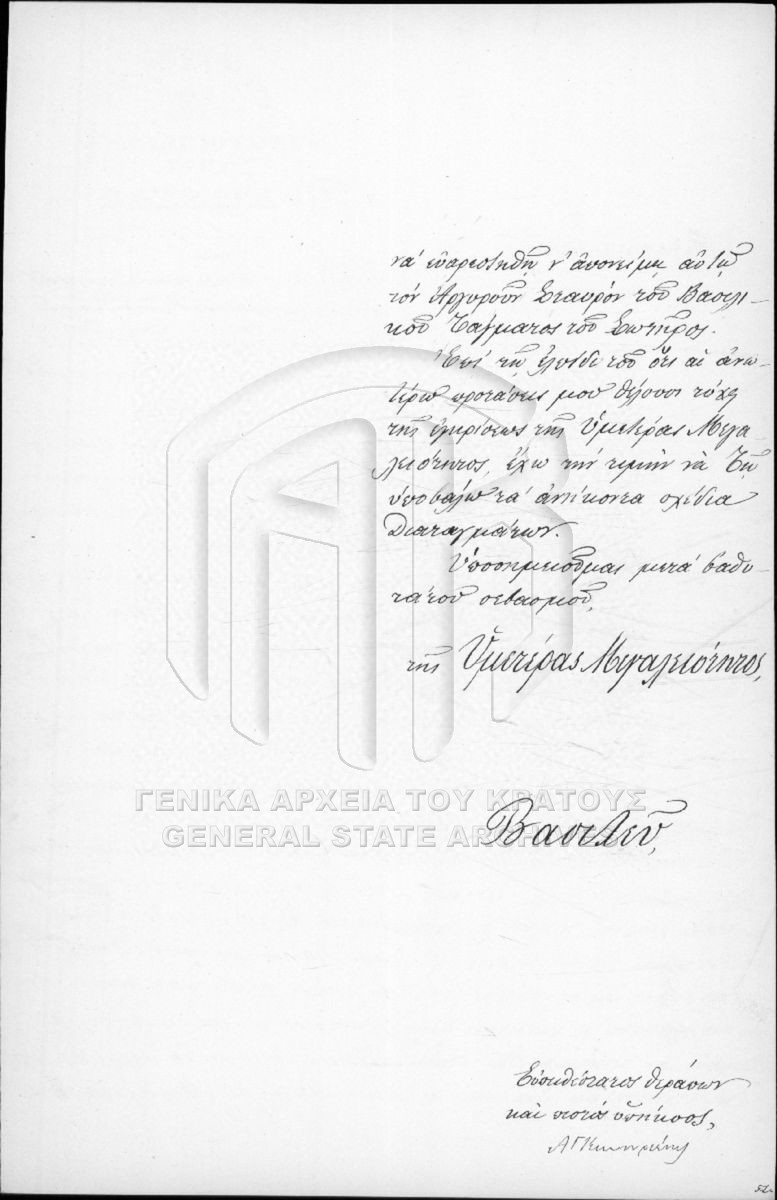 νὰ εὐαρεστηθῇ ν' ἀπονείμῃ αὐτῷ
τὸν Ἀργυροῦν Σταυρὸν τοῦ Βασιλι-
κοῦ Τάγματος τοῦ Σωτῆρος.
Ἐπὶ τῇ ἐλπίδι τοῦ ὅτι αἱ ἀνω-
τέρω προτάσεις μου θέλουσι τύχῃ
τῆς ἐγκρίσεως τῆς Ὑμετέρας Μεγα-
λειότητος, ἔχω τὴν τιμὴν νὰ Τῇ
ὑποβάλω τὰ ἀνήκοντα σχέδια
Διαταγμάτων.
Ὑποσημειοῦμαι μετὰ βαθυ-
τάτου σεβασμοῦ,
τῆς Ὑμετέρας Μεγαλειότητος,
ΓΕΝΙΚΑ ΑΡΧΕΙΑ ΤΟΥ ΚΡΑΤΟΥΣ
GENERAL STATE ARCHIVES
Βασιλεῦ,
Εὐπειθέστατος θεράπων
καὶ πιστὸς ὑπήκοος,